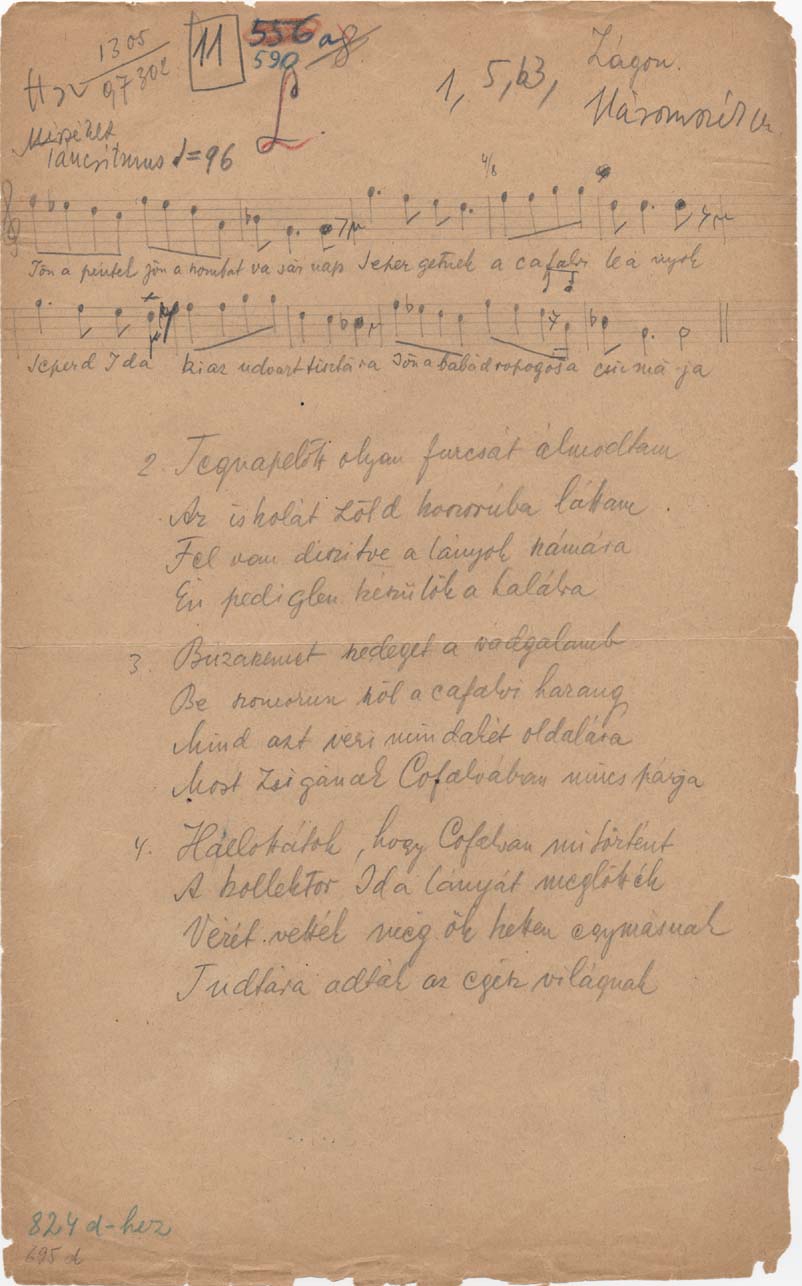 1305
97302
11
556 a
590
1, 5, b3,
Zágon.
Háromszék m.
táncritmus = 96
4/8
Jön a péntek jön a szombat va sár nap Seper getnek a cafalvi leá nyok
Seperd Ida ki az udvart tisztára Jön a babád ropogós a csiz má ja
2. Tegnapelőtt olyan furcsát álmodtam
Az iskolát zöld koszorúba láttam.
Fel van diszitve a lányok számára
Én pediglen készülök a halálra
3. Búzaszemet szedeget a vadgalamb
Be szomorun szól a cafalvi harang
Mind azt veri mindakét oldalára
Most Zsigának Cofalvában nincs párja
4. Hallottátok, hogy Cofalvan mi történt
A kollektor Ida lányát meglőtték
Vérét vették még ők ketten egymásnak
Tudtára adták az egész világnak
824 d-hez
695 d